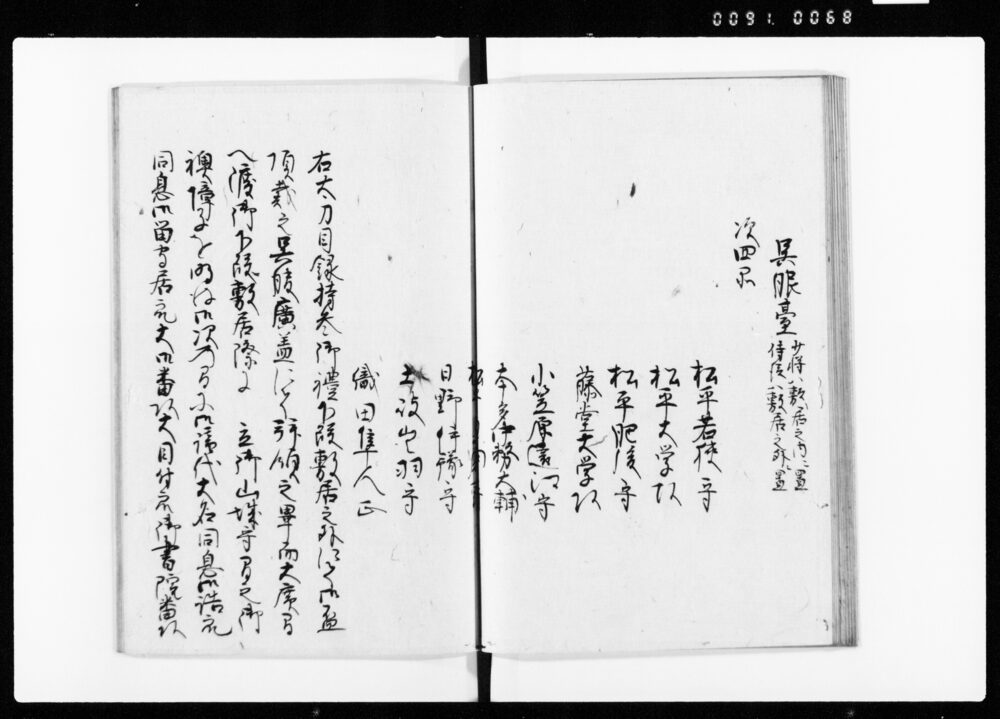 0091.0068
呉服臺 少将ハ敷居之内ニ置
侍従ハ敷居之外ニ置
次四品
松平若狭守
松平大学頭
松平肥後守
藤堂大学頭
小笠原遠江守
本多中務大輔
日野伊豫守
土岐出羽守
織田隼人正
右太刀目録持参御禮下段敷居之外ニ而御盃
頂戴之呉服廣蓋ニ而拝領之畢而大廣間
へ渡御下段敷居際ニ 立御山城守間之御
襖障子を明ル御次之間ニ御譜代大名同息御詰衆
同息御留守居衆大御番頭大目付衆御書院番頭